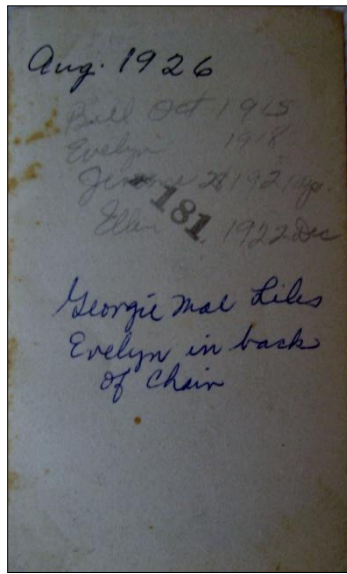 Aug. 1926
Bill Oct 1915
Evelyn 1918
1921
181
Ellen 1922 Dec
Georgie Mae Liles
Evelyn in back
of Chair